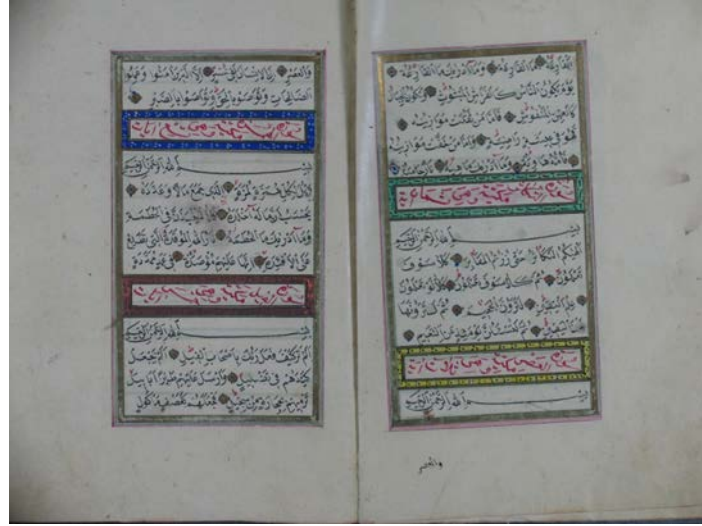 القارعة ما القارعة وما ادريك ما القارعة
يوم يكون الناس كالفراش المبثوث وتكون الجبال
كالعهن المنفوش فاما من ثقلت موازينه
فهو في عيشة راضية واما من خفت موازينه
فامه هاوية وما ادريك ماهيه نار حامية
سورة
بسم الله الرحمن الرحيم
الهيكم التكاثر حتى زرتم المقابر كلا سوف
تعلمون ثم كلا سوف تعلمون كلا لو تعلمون
علم اليقين لترون الجحيم ثم لترونها
عين اليقين ثم لتسئلن يومئذ عن النعيم
سورة
بسم الله الرحمن الرحيم
والعصر
والعصر ان الانسان لفي خسر الا الذين امنوا وعملوا
الصالحات وتواصوا بالحق وتواصوا بالصبر
سورة
بسم الله الرحمن الرحيم
ويل لكل همزة لمزة الذي جمع مالا وعدده
يحسب ان ماله اخلده كلا لينبذن في الحطمة
وما ادريك ما الحطمة نار الله الموقدة التي تطلع
على الافئدة انها عليهم مؤصدة في عمد ممددة
سورة
بسم الله الرحمن الرحيم
الم تر كيف فعل ربك باصحاب الفيل الم يجعل
كيدهم في تضليل وارسل عليهم طيرا ابابيل
ترميهم بحجارة من سجيل فجعلهم كعصف ماكول